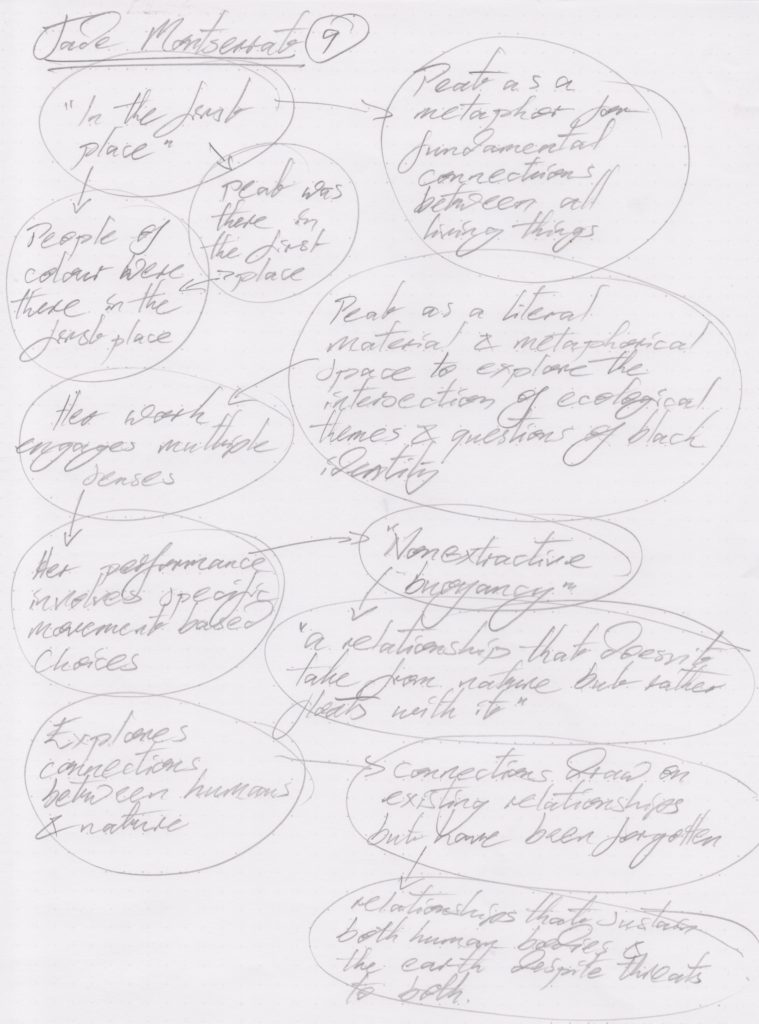 Jade Montserrat 9
"In the first
place"
Peat as a
metaphor for
fundamental
connections
between all
living things
Peat was
there in
the first
place
People of
colour were
there in the
first place
Peat as a literal
material & metaphorical
space to explore the
intersection of ecological
themes & questions of black
identity
Her work
engages multiple
senses
Her performance
involves specific
movement based
choices
"Nonextractive
buoyancy"
"a relationship that doesn't
take from nature but rather
floats with it"
Explores
connections
between humans
& nature
connections draw on
existing relationships
but have been forgotten
relationships that sustain
both human bodies &
the earth despite threats
to both.